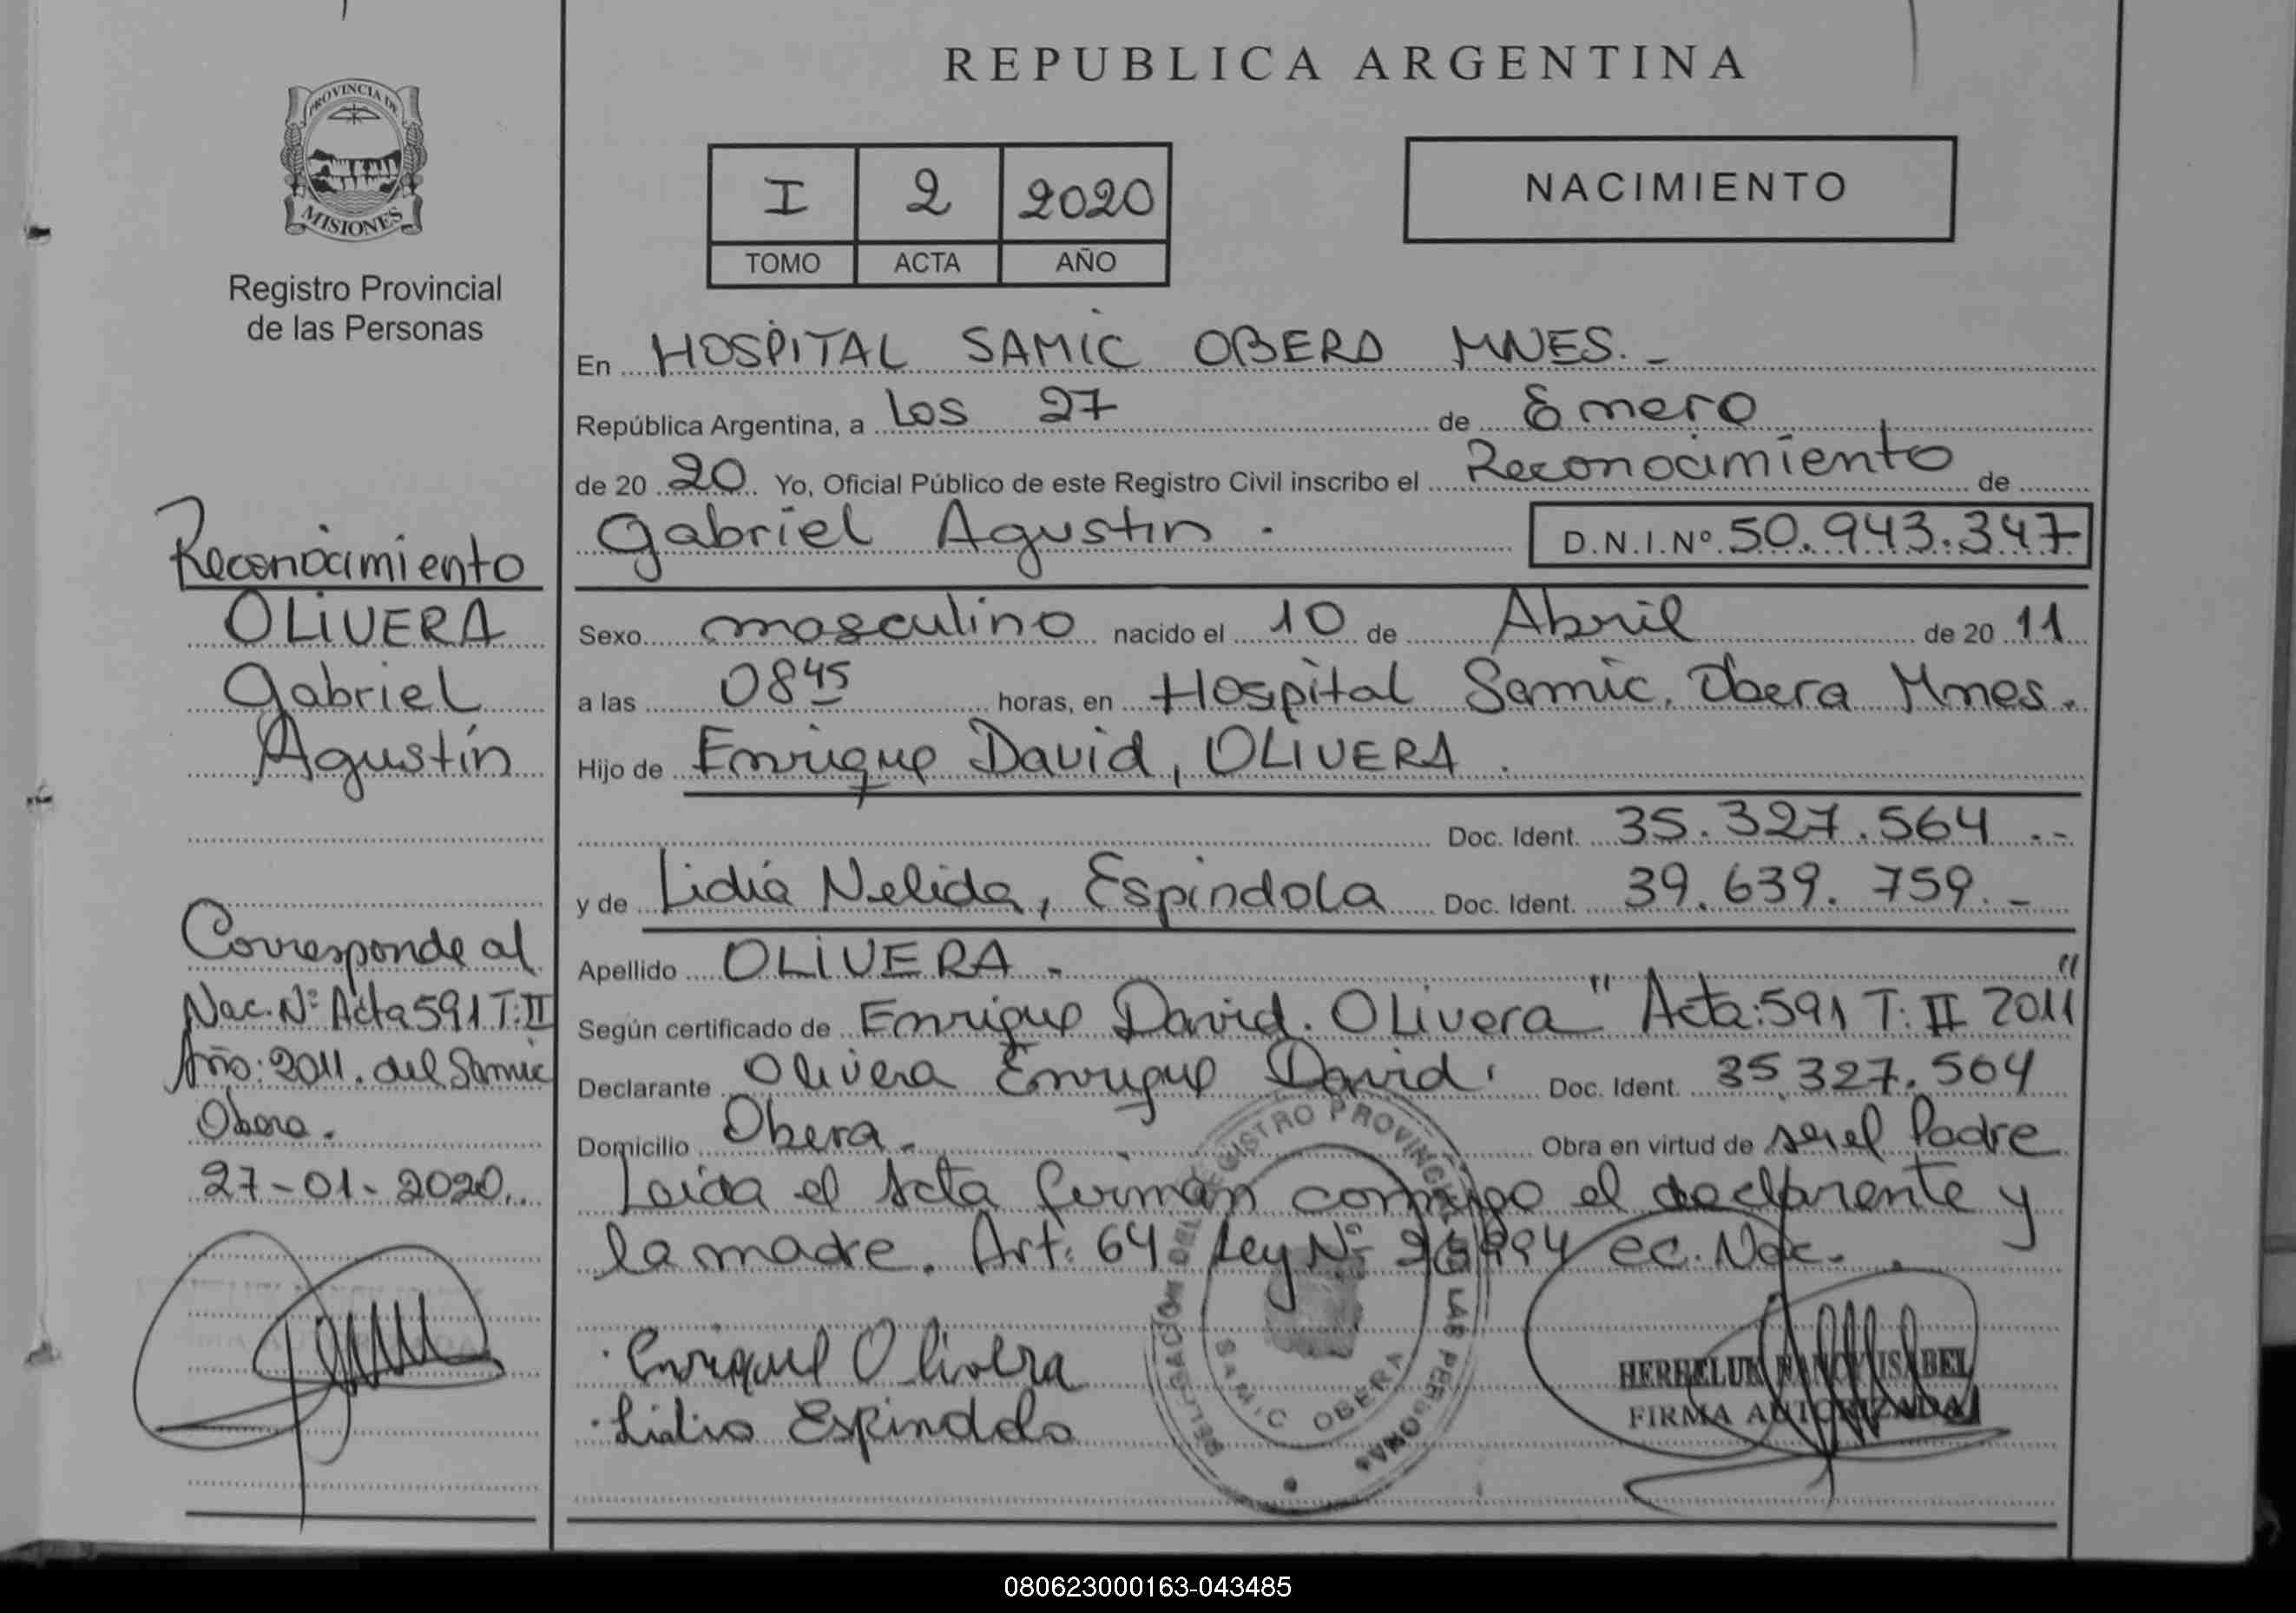 REPUBLICA ARGENTINA
PROVINCIA DE
MISIONES
Registro Provincial
de las Personas
I 2 2020
TOMO ACTA AÑO
NACIMIENTO
En HOSPITAL SAMIC OBERA MNES.-
República Argentina, a Los 27 de Enero
de 20 20 Yo, Oficial Público de este Registro Civil inscribo el Reconocimiento de
Gabriel Agustin. D.N.I.Nº 50.943.347
Sexo masculino nacido el 10 de Abril de 20 11
a las 0845 horas, en Hospital Samic. Obera Mnes.
Hijo de Enrique David, OLIVERA.
Doc. Ident. 35.327.564.-
y de Lidia Nelida, Espindola Doc. Ident. 39.639.759.-
Apellido OLIVERA.-
Según certificado de Enrique David. Olivera "Acta:591 T:II 2011"
Declarante Olivera Enrique David. Doc. Ident. 35.327.564
Domicilio Obera. Obra en virtud de ser el Padre
Leida el Acta firman conmigo el declarante y
la madre. Art: 64 Ley Nº 26994 CC. Nac.
Enrique Olivera
Lidia Espindola
DELEGACION DEL REGISTRO PROVINCIAL DE LAS PERSONAS
SAMIC OBERA
ISABEL
FIRMA AUTORIZADA
Reconocimiento
OLIVERA
Gabriel
Agustín
Corresponde al
Nac. Nº Acta 591 T:II
Año: 2011. del Samic
Obera.
27-01-2020.
080623000163-043485